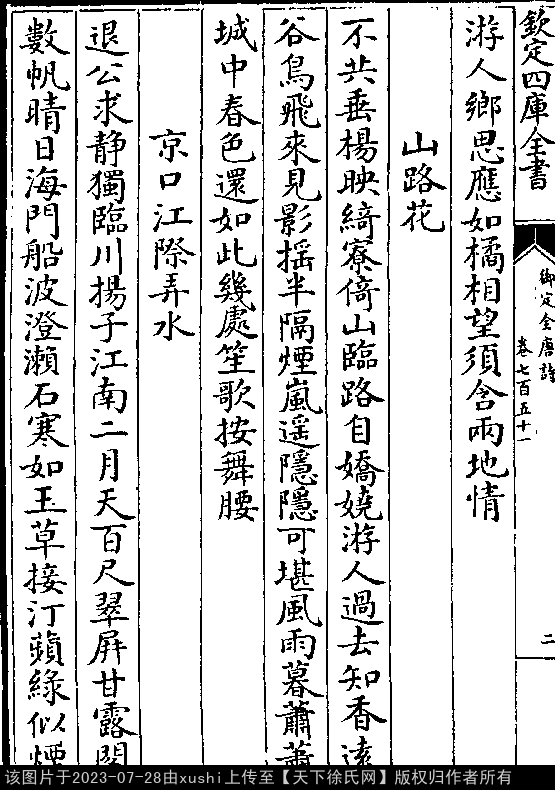 欽定四庫全書
御定全唐詩
卷七百五十一
二
游人鄉思應如橘相望須含兩地情
山路花
不共垂楊映綺寮倚山臨路自嬌嬈游人過去知香遠
谷鳥飛來見影摇半隔煙嵐遥隱隱可堪風雨暮蕭蕭
城中春色還如此幾處笙歌按舞腰
京口江際弄水
退公求静獨臨川揚子江南二月天百尺翠屏甘露閣
數帆晴日海門船波澄瀨石寒如玉草接汀蘋綠似煙
该图片于2023-07-28由xushi上传至【天下徐氏网】版权归作者所有